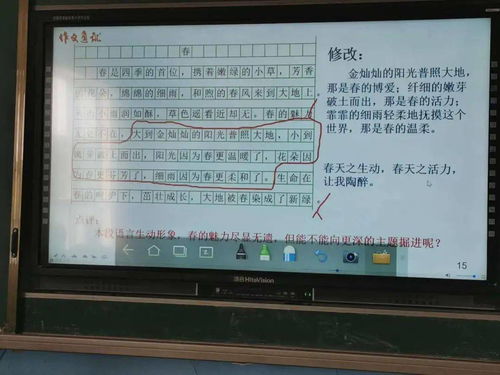 作文复议
春
春是四季的首位，携着嫩绿的小草，芳香
花朵，绵绵的细雨，和煦的春风来到大地上
小雨润如酥，草色遥看近却无。春的魅力
无处不在，大到金灿灿的阳光普照大地、小到
嫩芽破土而出，阳光因为春更温暖了，花朵因
为春更芬芳了，细雨因为春更柔和了。生命在
春的呵护下，茁壮成长，大地被春染成了新绿。
点评：
本段语言生动形象，春的魅力尽显无遗，但能不能向更深的主题掘进呢？
修改：
金灿灿的阳光普照大地，
那是春的博爱；纤细的嫩芽
破土而出，那是春的活力；
霏霏的细雨轻柔地抚摸这个
世界，那是春的温柔。
春天之生动，春天之活力，
让我陶醉。
15
HiteVision